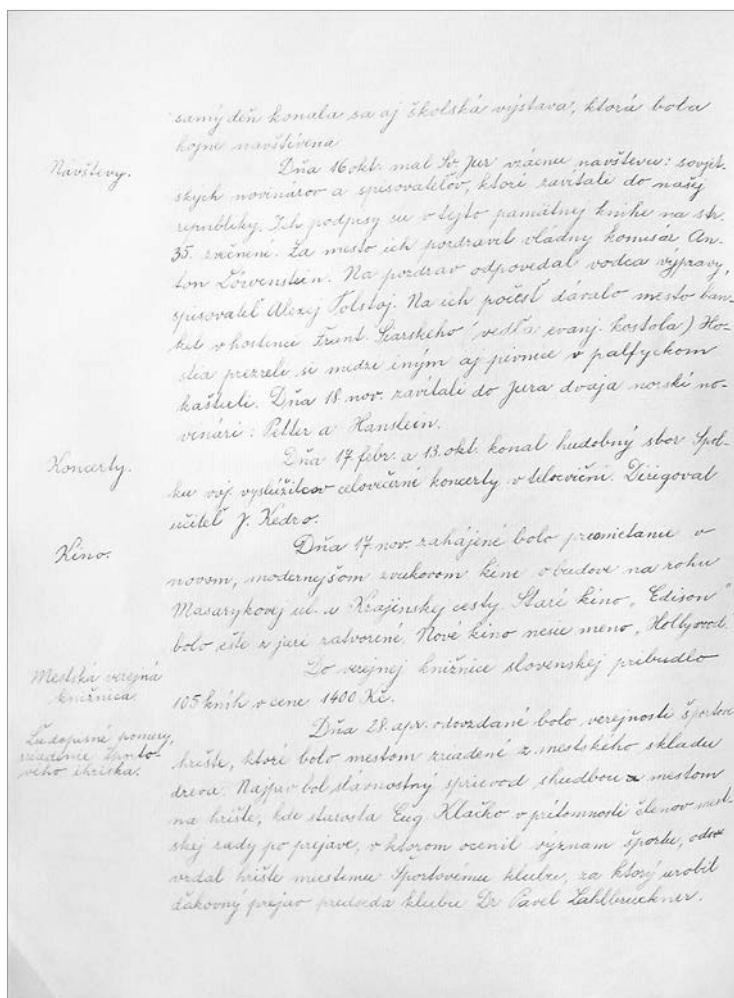 samý deň konala sa aj školská výstava, ktorá bola
hojne navštívena
Návštevy.
Dňa 16 okt. mal Sv. Jur vzácnu navštevu: sovjet-
ských novinárov a spisovateľov, ktorí zavítali do našej
republiky. Ich podpisy su v tejto pamätnej knihe na str.
35. zvečnené. Za mesto ich pozdravil vládny komisár An-
ton Löwenstein. Na pozdrav odpovedal vodca výpravy,
spisovateľ Alexej Tolstoj. Na ich počesť dávalo mesto ban-
ket v hostinci Frant. Siarskeho (vedľa evanj. kostola) Ho-
stia prezreli si medzi iným aj pivnice v palfyckom
kaštieli. Dňa 18. nov. zavítali do Jura dvaja norskí no-
vinári: Petter a Hanstein.
Koncerty.
Dňa 17 febr. a 13. okt. konal hudobný sbor Spol-
ku voj. vyslúžilcov celovečerné koncerty v telocvični. Dirigoval
učiteľ J. Kedro.
Kino.
Dňa 17. nov. zahájené bolo premietanie v
novom, modernejšom zvukovom kine v budove na rohu
Masarykovej ul. a Krajinskej cesty. Staré kino „Edison"
bolo ešte z jari zatvorené. Nové kino nesie meno „Hollywood.
Mestská verejná
knižnica.
Do verejnej knižnice slovenskej pribudlo
105 kníh v cene 1400 Kč.
Ľudopisné pomery,
zriadenie športo-
vého ihriska.
Dňa 28. apr. odovzdané bolo verejnosti športové
hrište, ktoré bolo mestom zriadené z mestského skladu
dreva. Najprv bol slávnostný sprievod s hudbou mestom
na hrište, kde starosta Eug. Klačko v prítomnosti členov mest-
skej rady po prejave, v ktorom ocenil význam športu, odo
vzdal hrište miestemu Športovému klubu, za ktorý urobil
ďakovný prejav predseda klubu Dr Pavel Zahlbruckner.